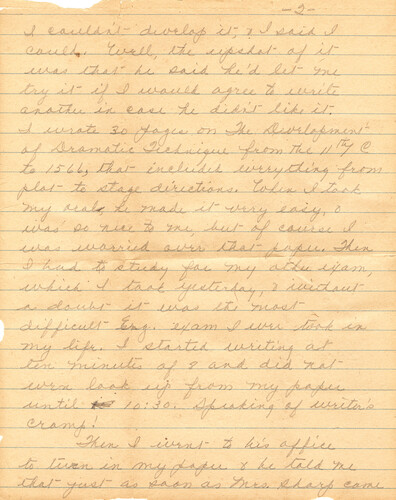 -2-
I couldn't develop it, & I said I
could. Well, the upshot of it
was that he said he'd let me
try it if I would agree to write
another in case he didn't like it.
I wrote 30 pages on The Development
of Dramatic Technique from the 11th C
to 1566, that included everything from
plot to stage directions. When I took
my oral, he made it very easy, &
was so nice to me, but of course I
was worried over that paper. Then
I had to study for my other exam,
which I took yesterday, & without
a doubt it was the most
difficult Eng. exam I ever took in
my life. I started writing at
ten minutes of 8 and did not
even look up from my paper
until 10:30. Speaking of writer's
cramp!
Then I went to his office
to turn in my paper & he told me
that just as soon as Mrs. Sharp came